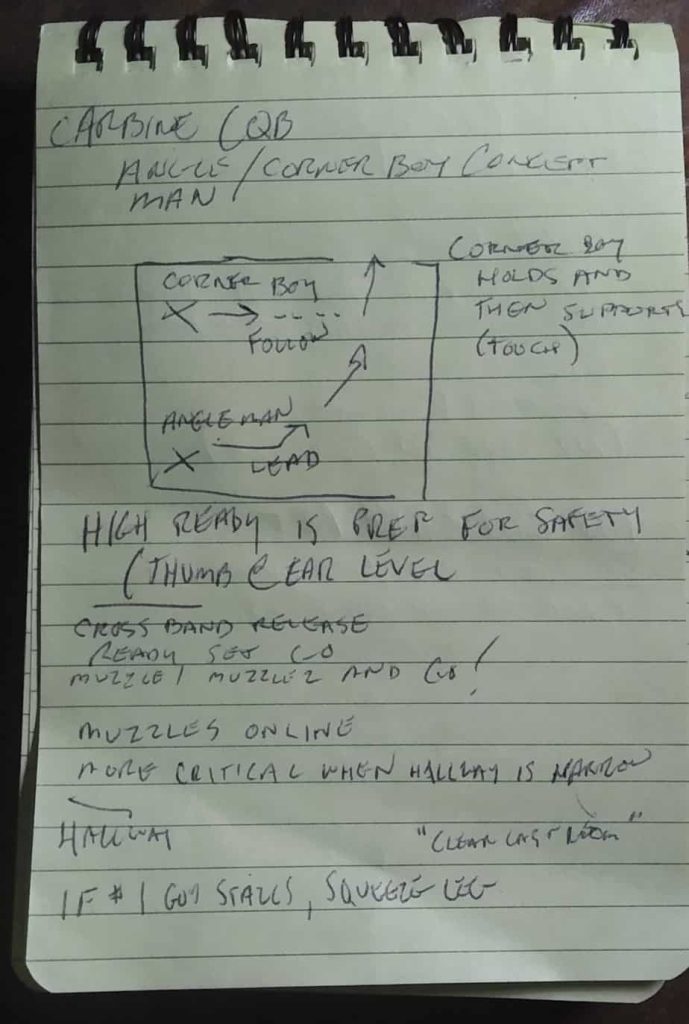 CARBINE CQB
ANGLE/CORNER BOY CONCEPT
MAN
CORNER BOY
X
FOLLOW
ANGLE MAN
X LEAD
CORNER BOY
HOLDS AND
THEN SUPPORTS
(TOUCH)
HIGH READY IS PREP FOR SAFETY
(THUMB @ EAR LEVEL
CROSS BAND RELEASE
READY SET GO
MUZZLE 1 MUZZLE 2 AND GO!
MUZZLES ONLINE
MORE CRITICAL WHEN HALLWAY IS NARROW
HALLWAY
"CLEAR LAST ROOM"
IF #1 GUY STALLS, SQUEEZE LEG